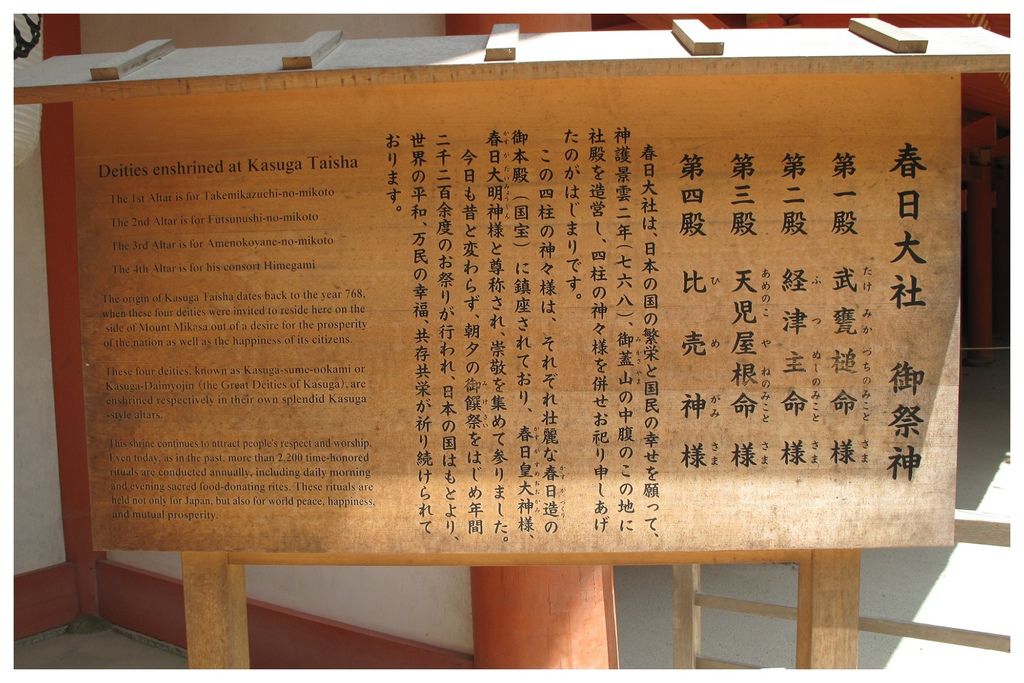 春日大社 御祭神
第一殿 武甕槌命様
たけみかづちのみこと さま
第二殿 経津主命様
ふつぬしのみこと さま
第三殿 天児屋根命様
あめのこやねのみこと さま
第四殿 比売神様
ひめがみ さま
春日大社は、日本の国の繁栄と国民の幸せを願って、
神護景雲二年(七六八)、御蓋山の中腹のこの地に
みかさやま
社殿を造営し、四柱の神々様を併せお祀り申しあげ
たのがはじまりです。
この四柱の神々様は、それぞれ壮麗な春日造の
かすがづくり
御本殿(国宝)に鎮座されており、春日皇大神様、
かすがすめおおかみ
春日大明神様と尊称され、崇敬を集めて参りました。
かすがだいみょうじん
今日も昔と変わらず、朝夕の御饌祭をはじめ年間
みけさい
二千二百余度のお祭りが行われ、日本の国はもとより、
世界の平和、万民の幸福、共存共栄が祈り続けられて
おります。
Deities enshrined at Kasuga Taisha
The 1st Altar is for Takemikazuchi-no-mikoto
The 2nd Altar is for Futsunushi-no-mikoto
The 3rd Altar is for Amenokoyane-no-mikoto
The 4th Altar is for his consort Himegami
The origin of Kasuga Taisha dates back to the year 768,
when these four deities were invited to reside here on the
side of Mount Mikasa out of a desire for the prosperity
of the nation as well as the happiness of its citizens.
These four deities, known as Kasuga-sume-ookami or
Kasuga-Daimyojin (the Great Deities of Kasuga), are
enshrined respectively in their own splendid Kasuga
-style altars.
This shrine continues to attract people's respect and worship.
Even today, as in the past, more than 2,200 time-honored
rituals are conducted annually, including daily morning
and evening sacred food-donating rites. These rituals are
held not only for Japan, but also for world peace, happiness,
and mutual prosperity.